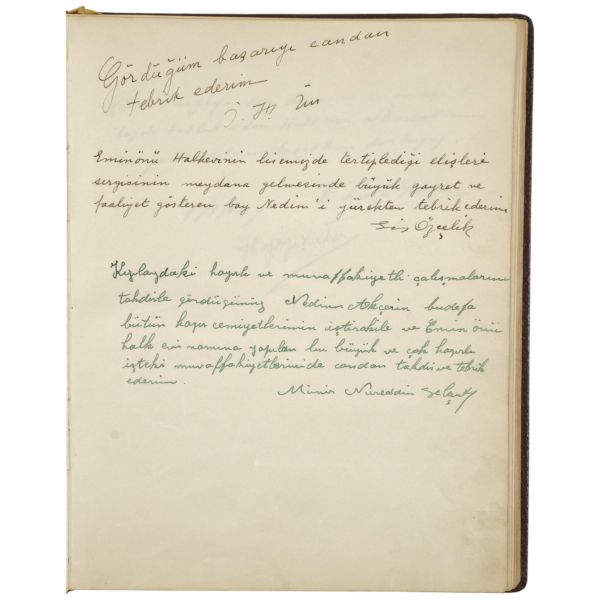 Gördüğüm başarıyı candan
tebrik ederim
Eminönü Halkevinin lisemizde tertiplediği elişleri
sergisinin meydana gelmesinde büyük gayret ve
faaliyet gösteren bay Nedim'i yürekten tebrik ederim
Özçelik
Kızılaydaki hayırlı ve muvaffakiyetli çalışmalarını
takdirle gördüğümüz Nedim Akçerin budefa
bütün hayır cemiyetlerinin iştirakile ve Emin önü
halk evi namına yapılan bu büyük ve çok hayırlı
işteki muvaffakiyetlerinide candan takdir ve tebrik
ederim.
Münir Nureddin Selçuk